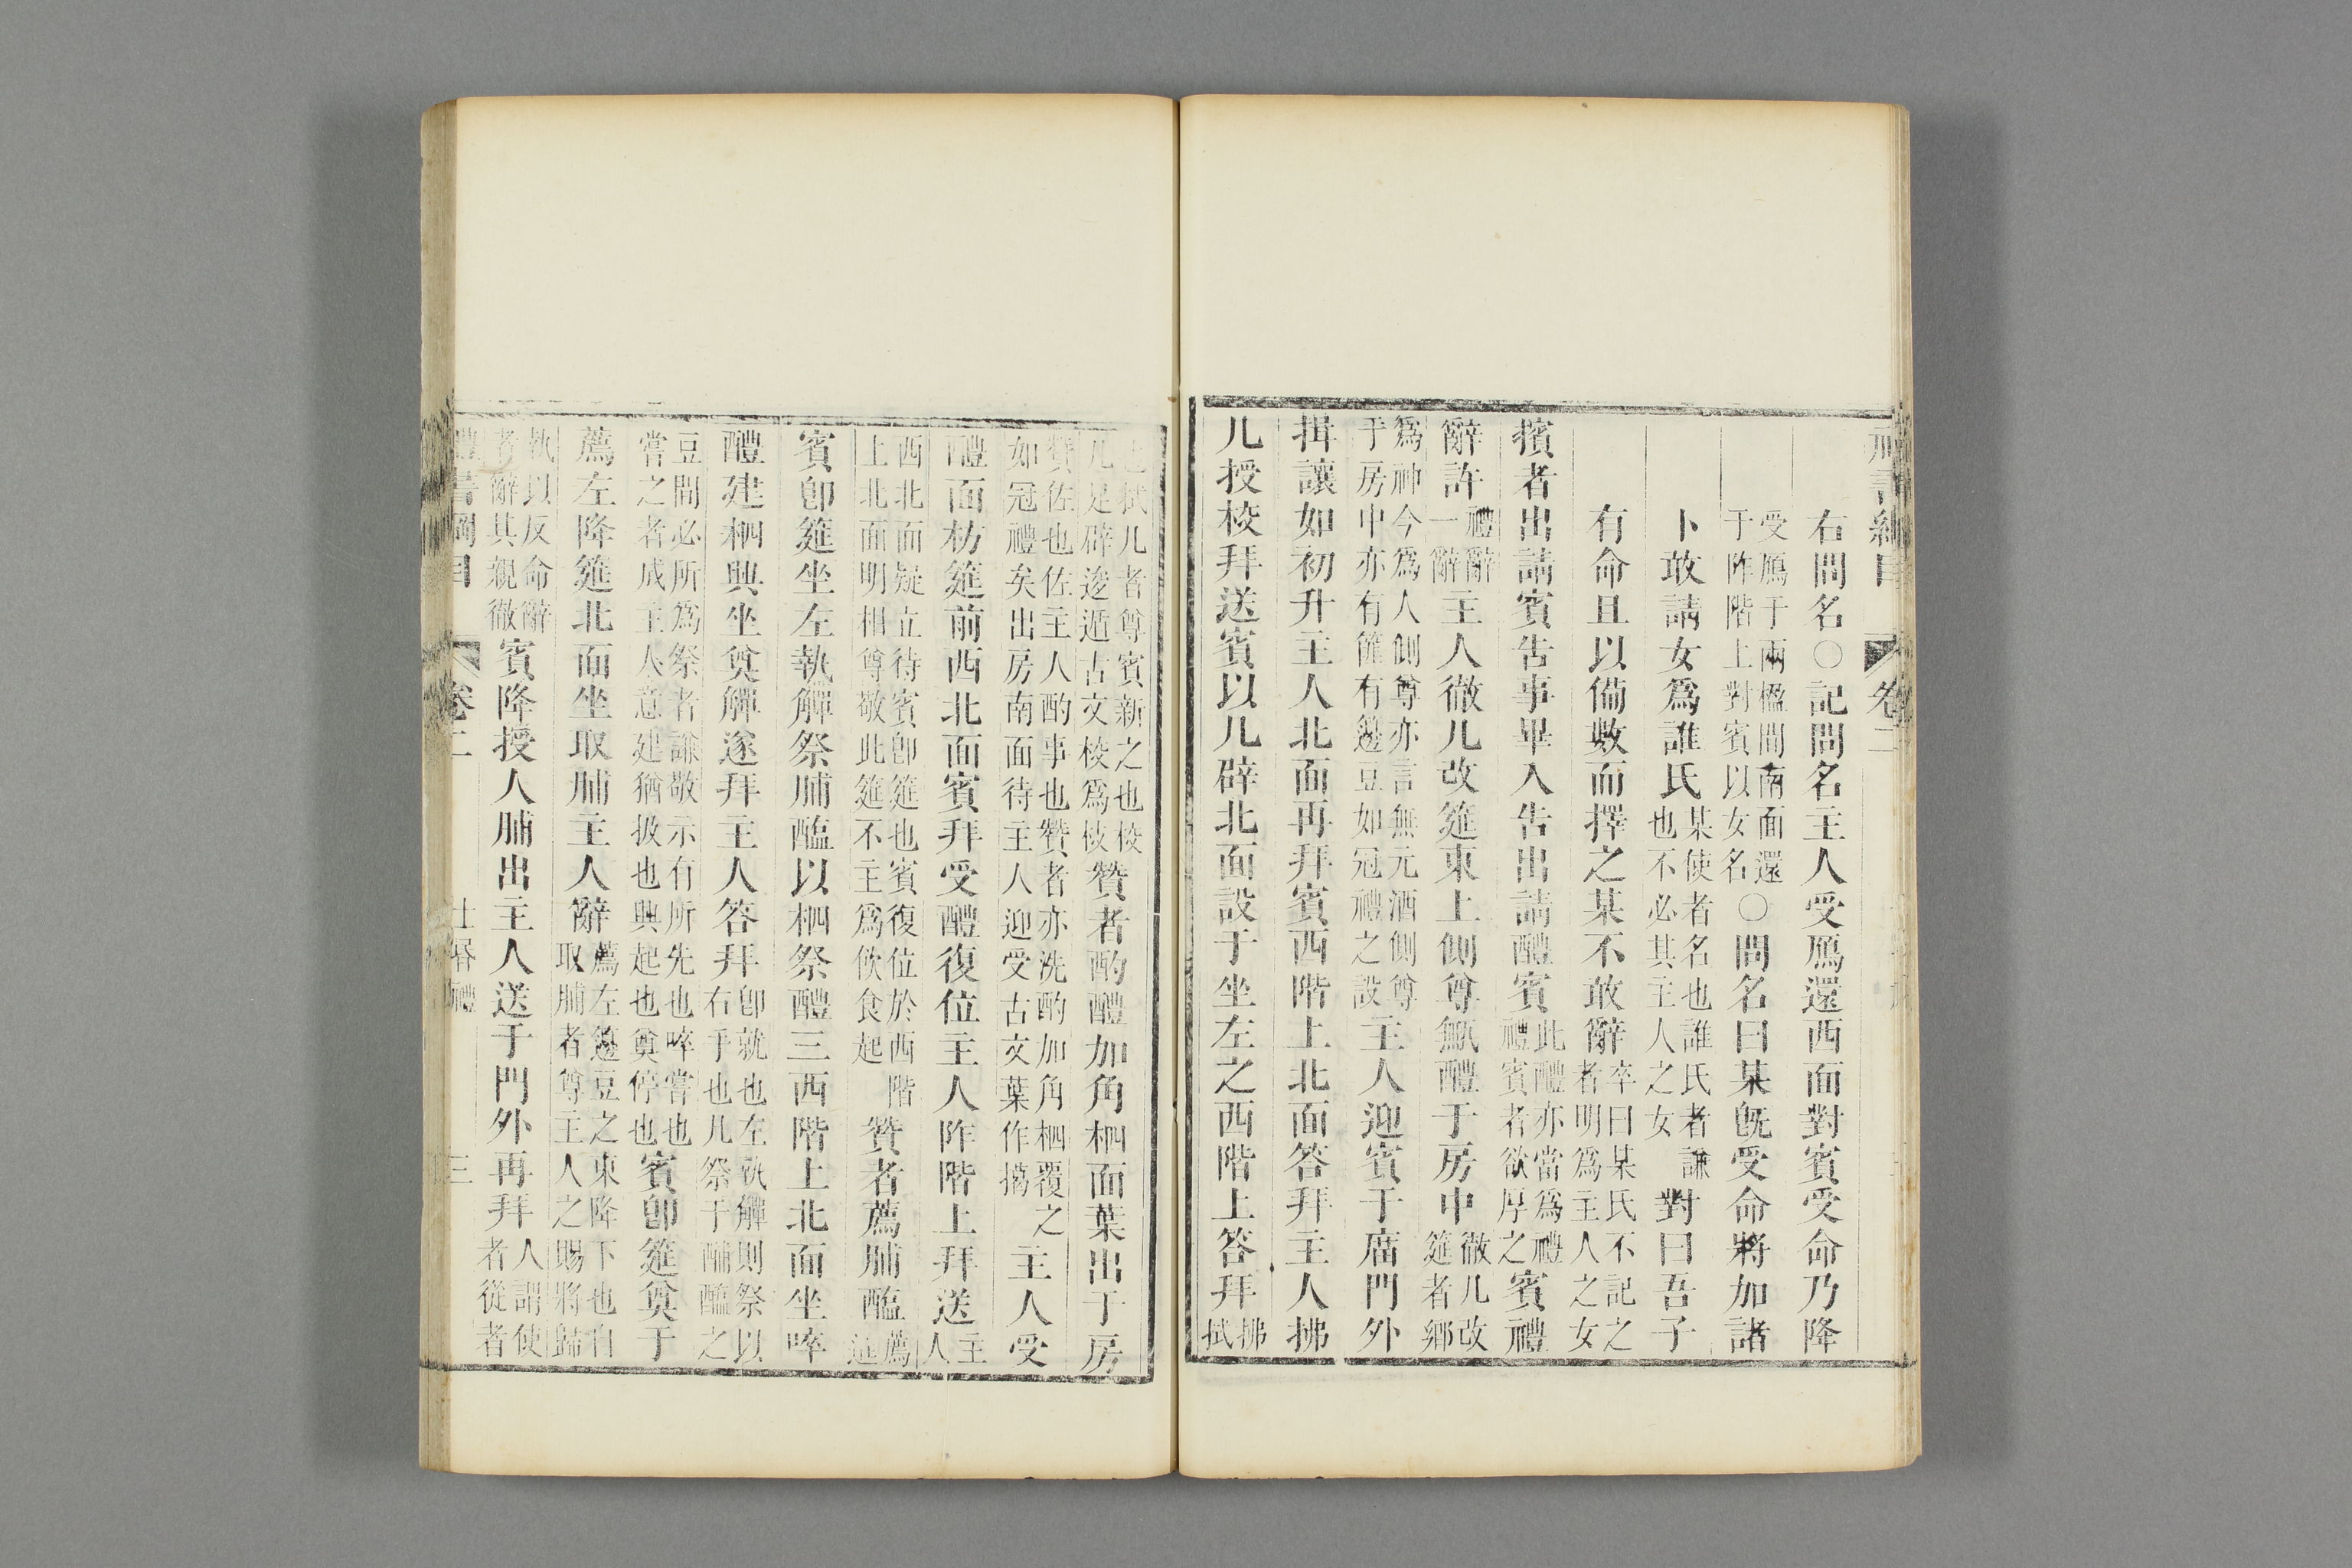 禮書綱目 卷二
右問名○記問名主人受鴈還西面對賓受命乃降
受鴈于兩楹間南面還于阼階上對賓以女名○問名曰某旣受命將加諸
卜敢請女爲誰氏某使者名也誰氏者謙也不必其主人之女對曰吾子
有命且以備數而擇之某不敢辭卒曰某氏不記之者明爲主人之女
擯者出請賓告事畢入告出請醴賓此醴亦當爲禮禮賓者欲厚之賓禮
辭許禮辭一辭主人徹几改筵東上側尊甒醴于房中徹几改筵者鄉
爲神今爲人側尊亦言無元酒側尊于房中亦有篚有籩豆如冠禮之設主人迎賓于庿門外
揖讓如初升主人北面再拜賓西階上北面答拜主人拂
几授校拜送賓以几辟北面設于坐左之西階上答拜拂拭
也拭几者尊賓新之也校几足辟逡遁古文校爲枝贊者酌醴加角柶面葉出于房
贊佐也佐主人酌事也贊者亦洗酌加角柶覆之如冠禮矣出房南面待主人迎受古文葉作擖主人受
醴面枋筵前西北面賓拜受醴復位主人阼階上拜送主人
西北面疑立待賓卽筵也賓復位於西階上北面明相尊敬此筵不主爲飮食起贊者薦脯醢薦進
賓卽筵坐左執觶祭脯醢以柶祭醴三西階上北面坐啐
醴建柶興坐奠觶遂拜主人答拜卽就也左執觶則祭以右手也凡祭于脯醢之
豆間必所爲祭者謙敬示有所先也啐嘗也嘗之者成主人意建猶扱也興起也奠停也賓卽筵奠于
薦左降筵北面坐取脯主人辭薦左籩豆之東降下也自取脯者尊主人之賜將歸
執以反命辭者辭其親徹賓降授人脯出主人送于門外再拜人謂使者從者
禮書綱目 卷二 士昏禮 三